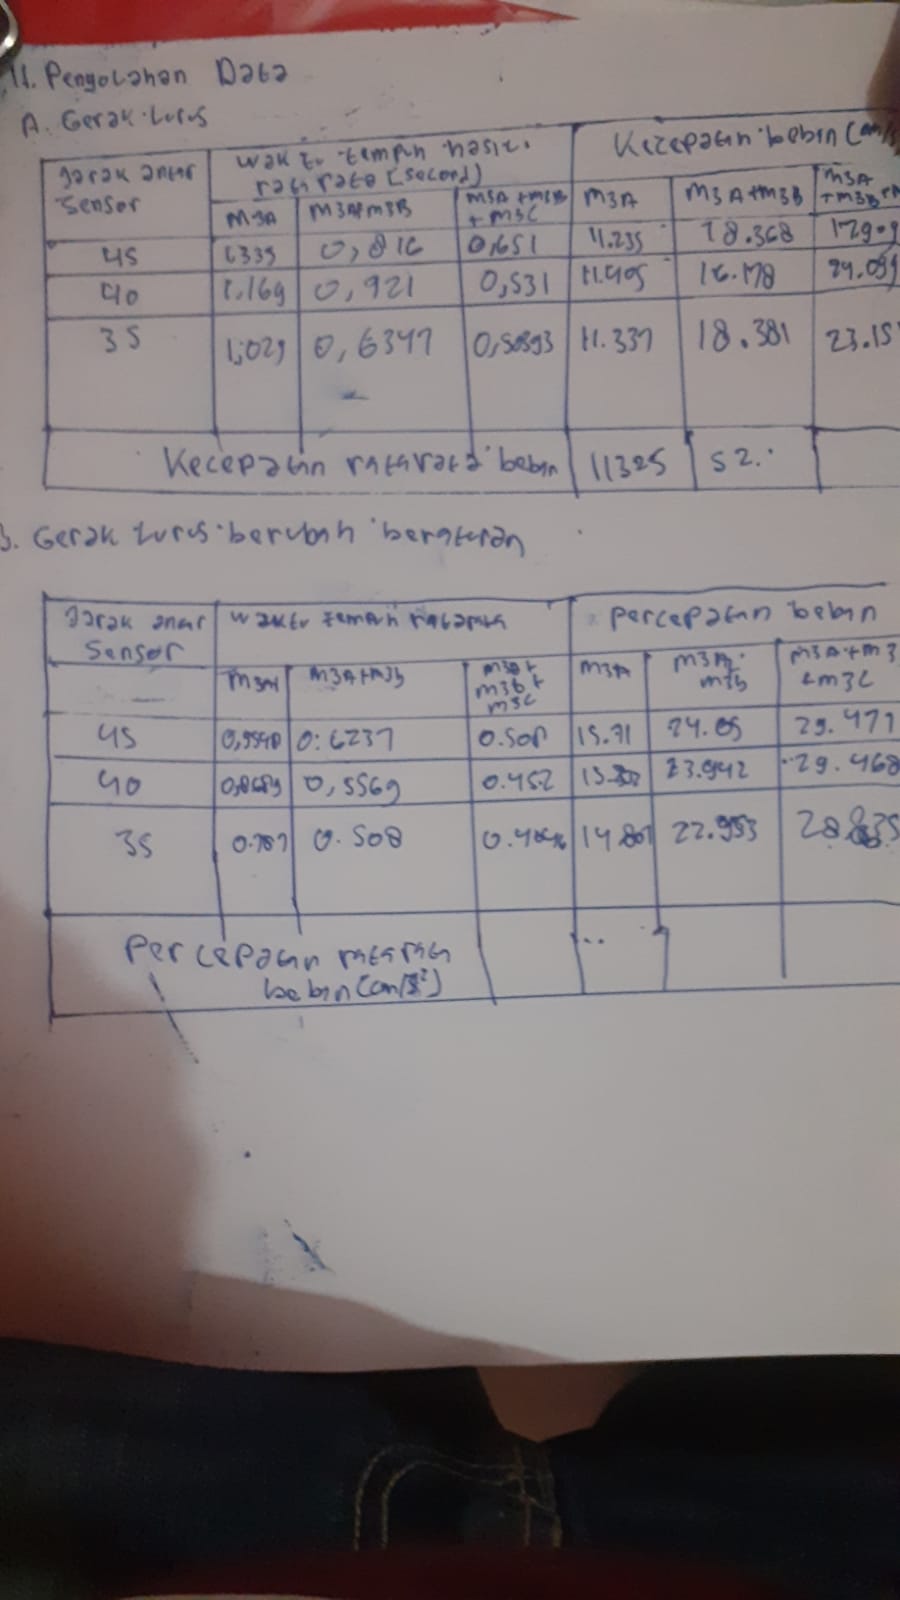 II. Pengolahan Data
A. Gerak Lurus
Jarak antar Sensor | Waktu tempuh hasil rata rata (second) | Kecepatan beban (cm/
M3A | M3A+M3B | M3A+M3B+M3C | M3A | M3A+M3B | M3A+M3B+M
45 | 1339 | 0,816 | 0,651 | 11.235 | 18.368
40 | 1.169 | 0,921 | 0,531 | 11.405 | 16.178
35 | 1,029 | 0,6347 | 11.337 | 18.381 | 23.15
Kecepatan ratarata beban | 11325 | 52.
B. Gerak lurus berubah beraturan
Jarak antar Sensor | Waktu tempuh ratarata | Percepatan beban
M3A | M3A+M3b | M3A+M3b+M3C | M3A | M3A+M3b | M3A+M3+M3C
45 | 0:6237 | 0.508 | 15.71 | 24.05 | 29.477
40 | 0,5569 | 0.452 | 23.942 | 29.468
35 | 0.787 | 0.508 | 14.807 | 22.953
Percepatan ratarata
beban (cm/s²)